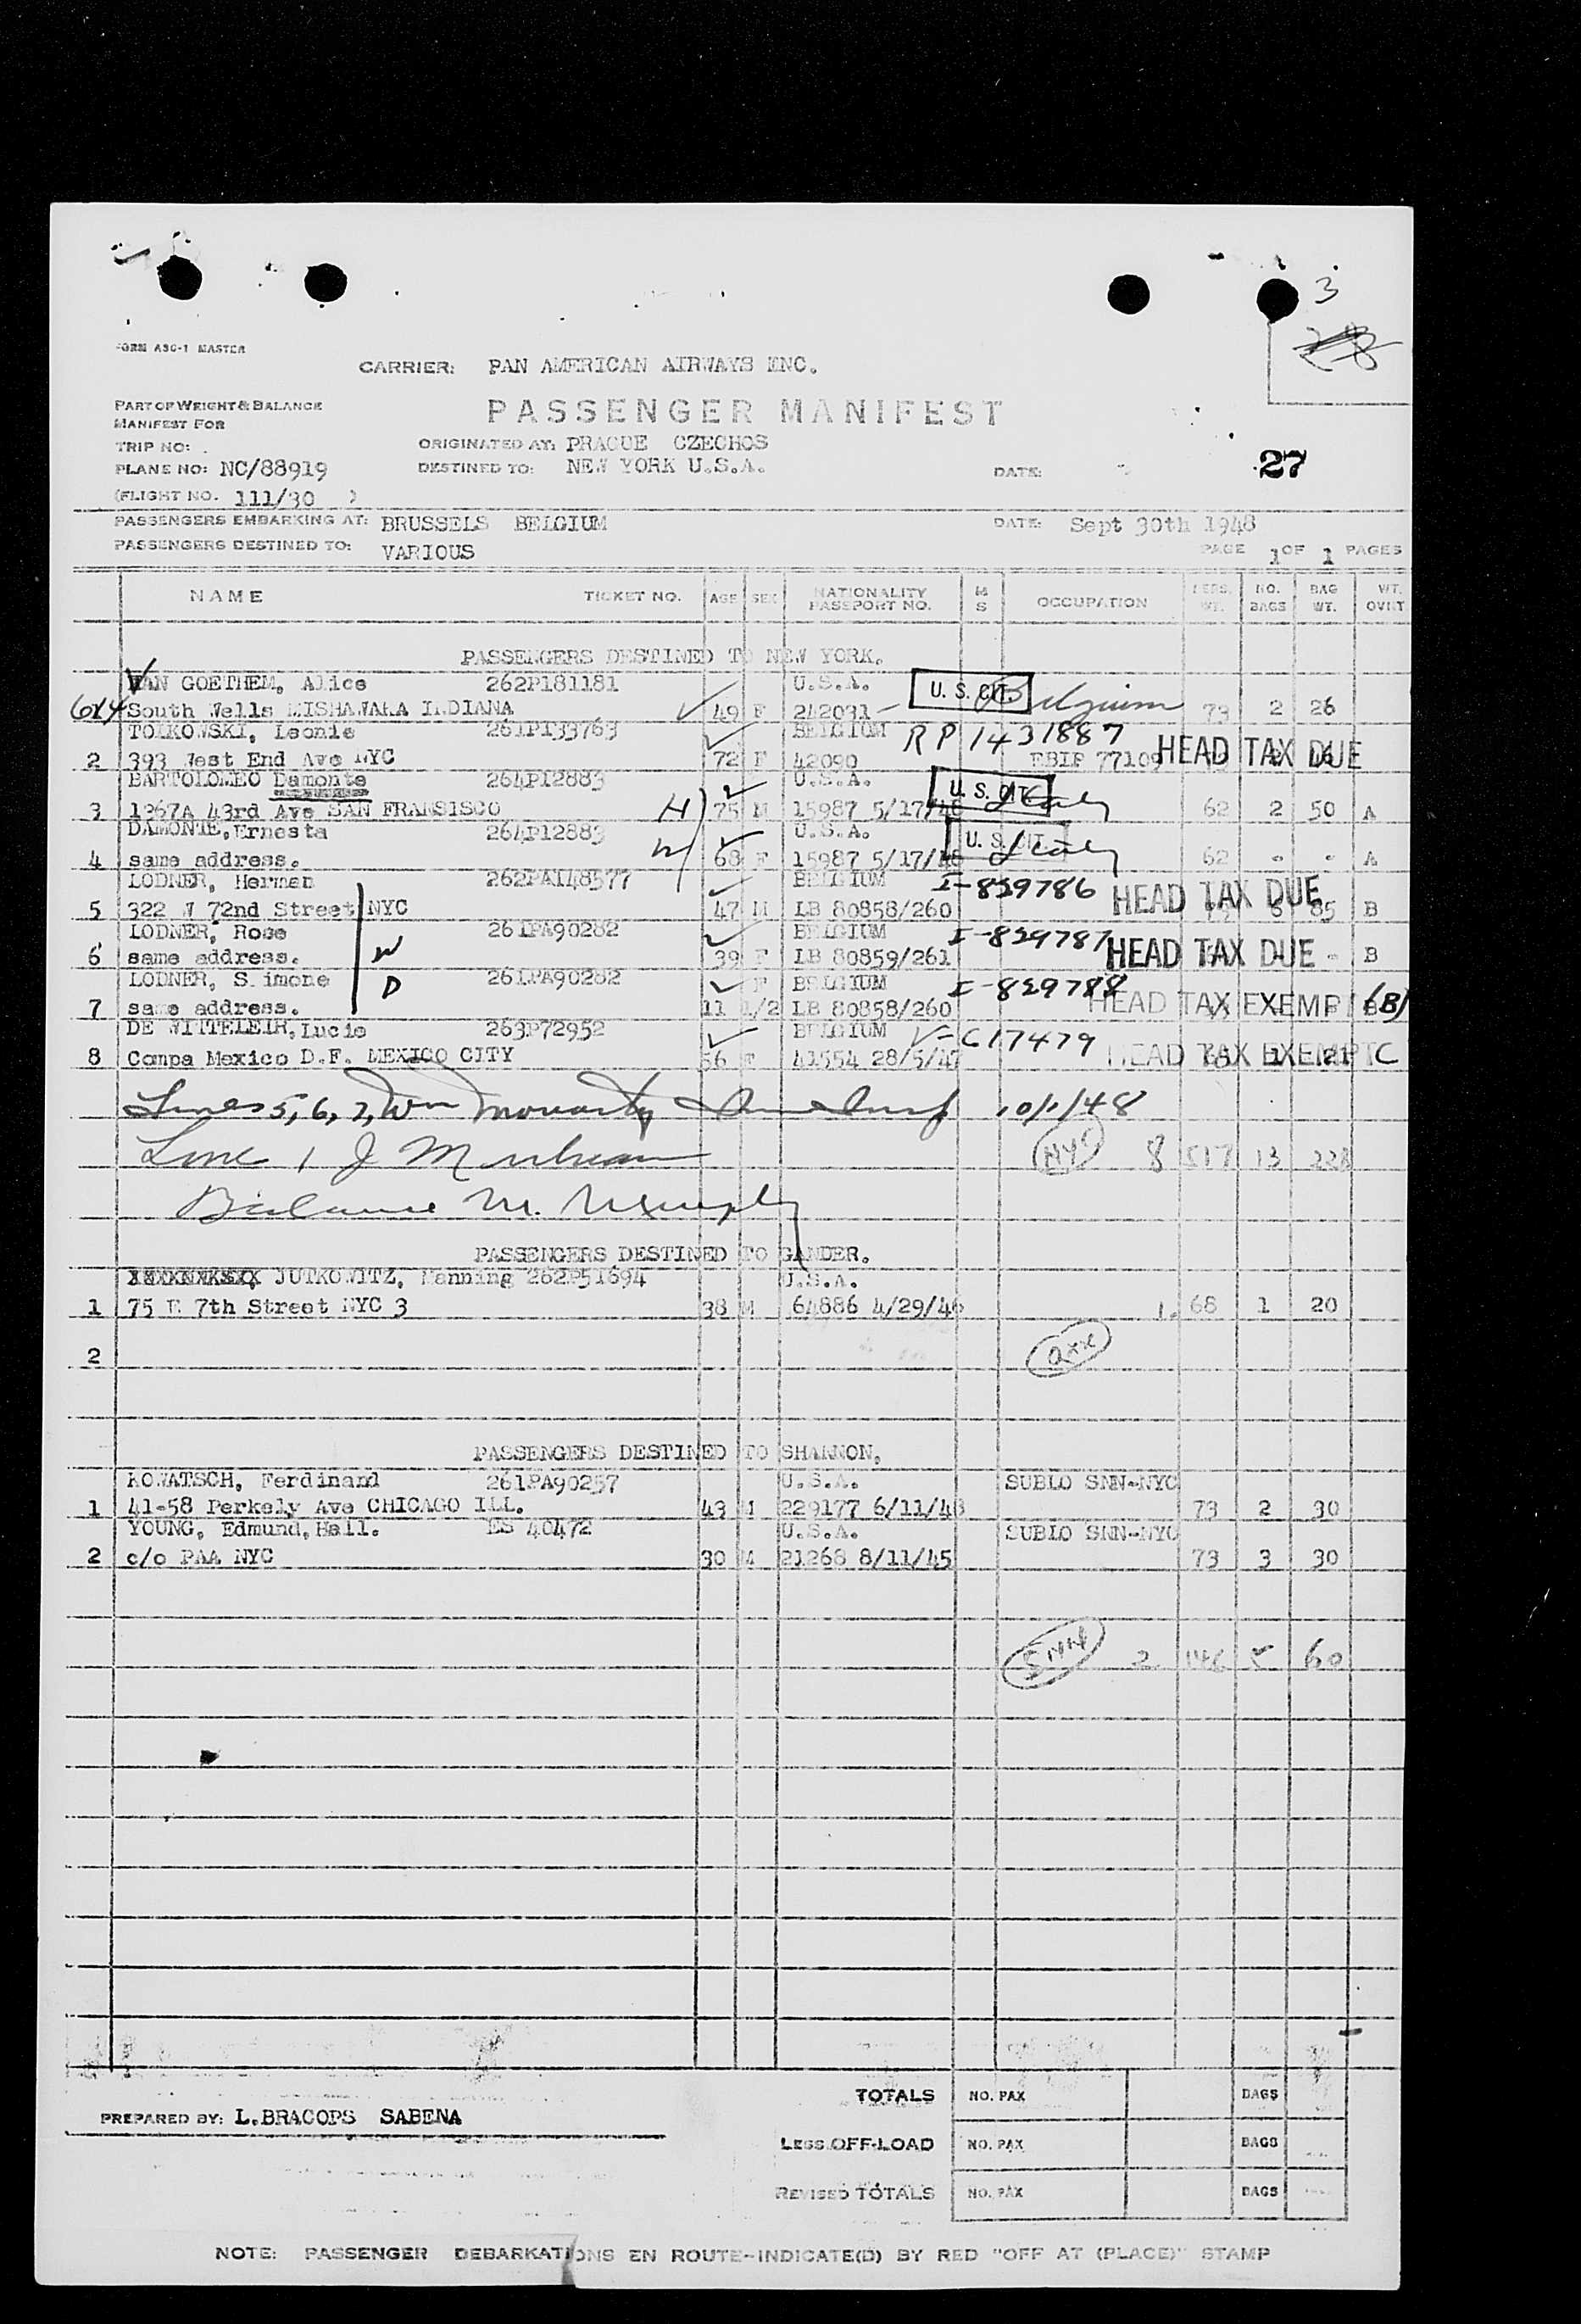 3
FORM ASC-1 MASTER
CARRIER: PAN AMERICAN AIRWAYS INC.
PART OF WEIGHT & BALANCE
MANIFEST FOR
PASSENGER MANIFEST
TRIP NO:
ORIGINATED AT: PRAGUE CZECHOS
PLANE NO: NC/88919
DESTINED TO: NEW YORK U.S.A.
DATE:
27
(FLIGHT NO. 111/30 )
PASSENGERS EMBARKING AT: BRUSSELS BELGIUM
DATE: Sept 30th 1948
PASSENGERS DESTINED TO: VARIOUS
PAGE 1 OF 1 PAGES
NAME TICKET NO. AGE SEX NATIONALITY PASSPORT NO. M S OCCUPATION PERS. WT. NO. BAGS BAG WT. WT. OVNT
PASSENGERS DESTINED TO NEW YORK.
VAN GOETHEM, Alice 262P181181 U.S.A. U. S. CIT. Belgium
614 South Wells MISHAWAKA INDIANA 49 F 242031 73 2 26
TOLKOWSKI, Leonie 261P133763 BELGIUM RP 1431887
2 393 West End Ave NYC 72 F 42090 EBIP 77109 HEAD TAX DUE
BARTOLOMEO Damonte 264P12883 U.S.A. U. S. CIT. Italy
3 1367A 43rd Ave SAN FRANSISCO H 75 M 15987 5/17/48 62 2 50 A
DAMONTE, Ernesta 264P12883 U.S.A. U. S. CIT. Italy
4 same address. W 68 F 15987 5/17/48 62 - - A
LODNER, Herman 262PA148577 BELGIUM I-859786 HEAD TAX DUE
5 322 W 72nd Street NYC 47 M LB 80858/260 85 B
LODNER, Rose 261PA90282 BELGIUM I-859787 HEAD TAX DUE
6 same address. W 39 F LB 80859/261 - B
LODNER, Simone 261PA90282 F BELGIUM I-859788 HEAD TAX EXEMPT
7 same address. D 11 1/2 LB 80858/260 (B)
DE WITTELEIR, Lucie 263P72952 BELGIUM V-617479 HEAD TAX EXEMPT
8 Compa Mexico D.F. MEXICO CITY 56 F 41554 28/5/47 1 21 C
Lines 5, 6, 7, Wm Moriarty 10/1/48
Line 1 J M
NYC 8 517 13 228
Balance M. Murphy
PASSENGERS DESTINED TO GANDER.
JUTKOWITZ, Manning 262P51694 U.S.A.
1 75 E 7th Street NYC 3 38 M 64886 4/29/46 1. 68 1 20
2
PASSENGERS DESTINED TO SHANNON.
KOWATSCH, Ferdinand 261PA90257 U.S.A. SUBLO SNN-NYC
1 41-58 Perkely Ave CHICAGO ILL. 43 M 229177 6/11/48 73 2 30
YOUNG, Edmund, Hall. ES 40472 U.S.A. SUBLO SNN-NYC
2 c/o PAA NYC 30 M 21268 8/11/45 73 3 30
SNN 2 146 5 60
TOTALS NO. PAX BAGS
PREPARED BY: L.BRACOPS SABENA
LESS OFF-LOAD NO. PAX BAGS
REVISED TOTALS NO. PAX BAGS
NOTE: PASSENGER DEBARKATIONS EN ROUTE--INDICATE(D) BY RED "OFF AT (PLACE)" STAMP